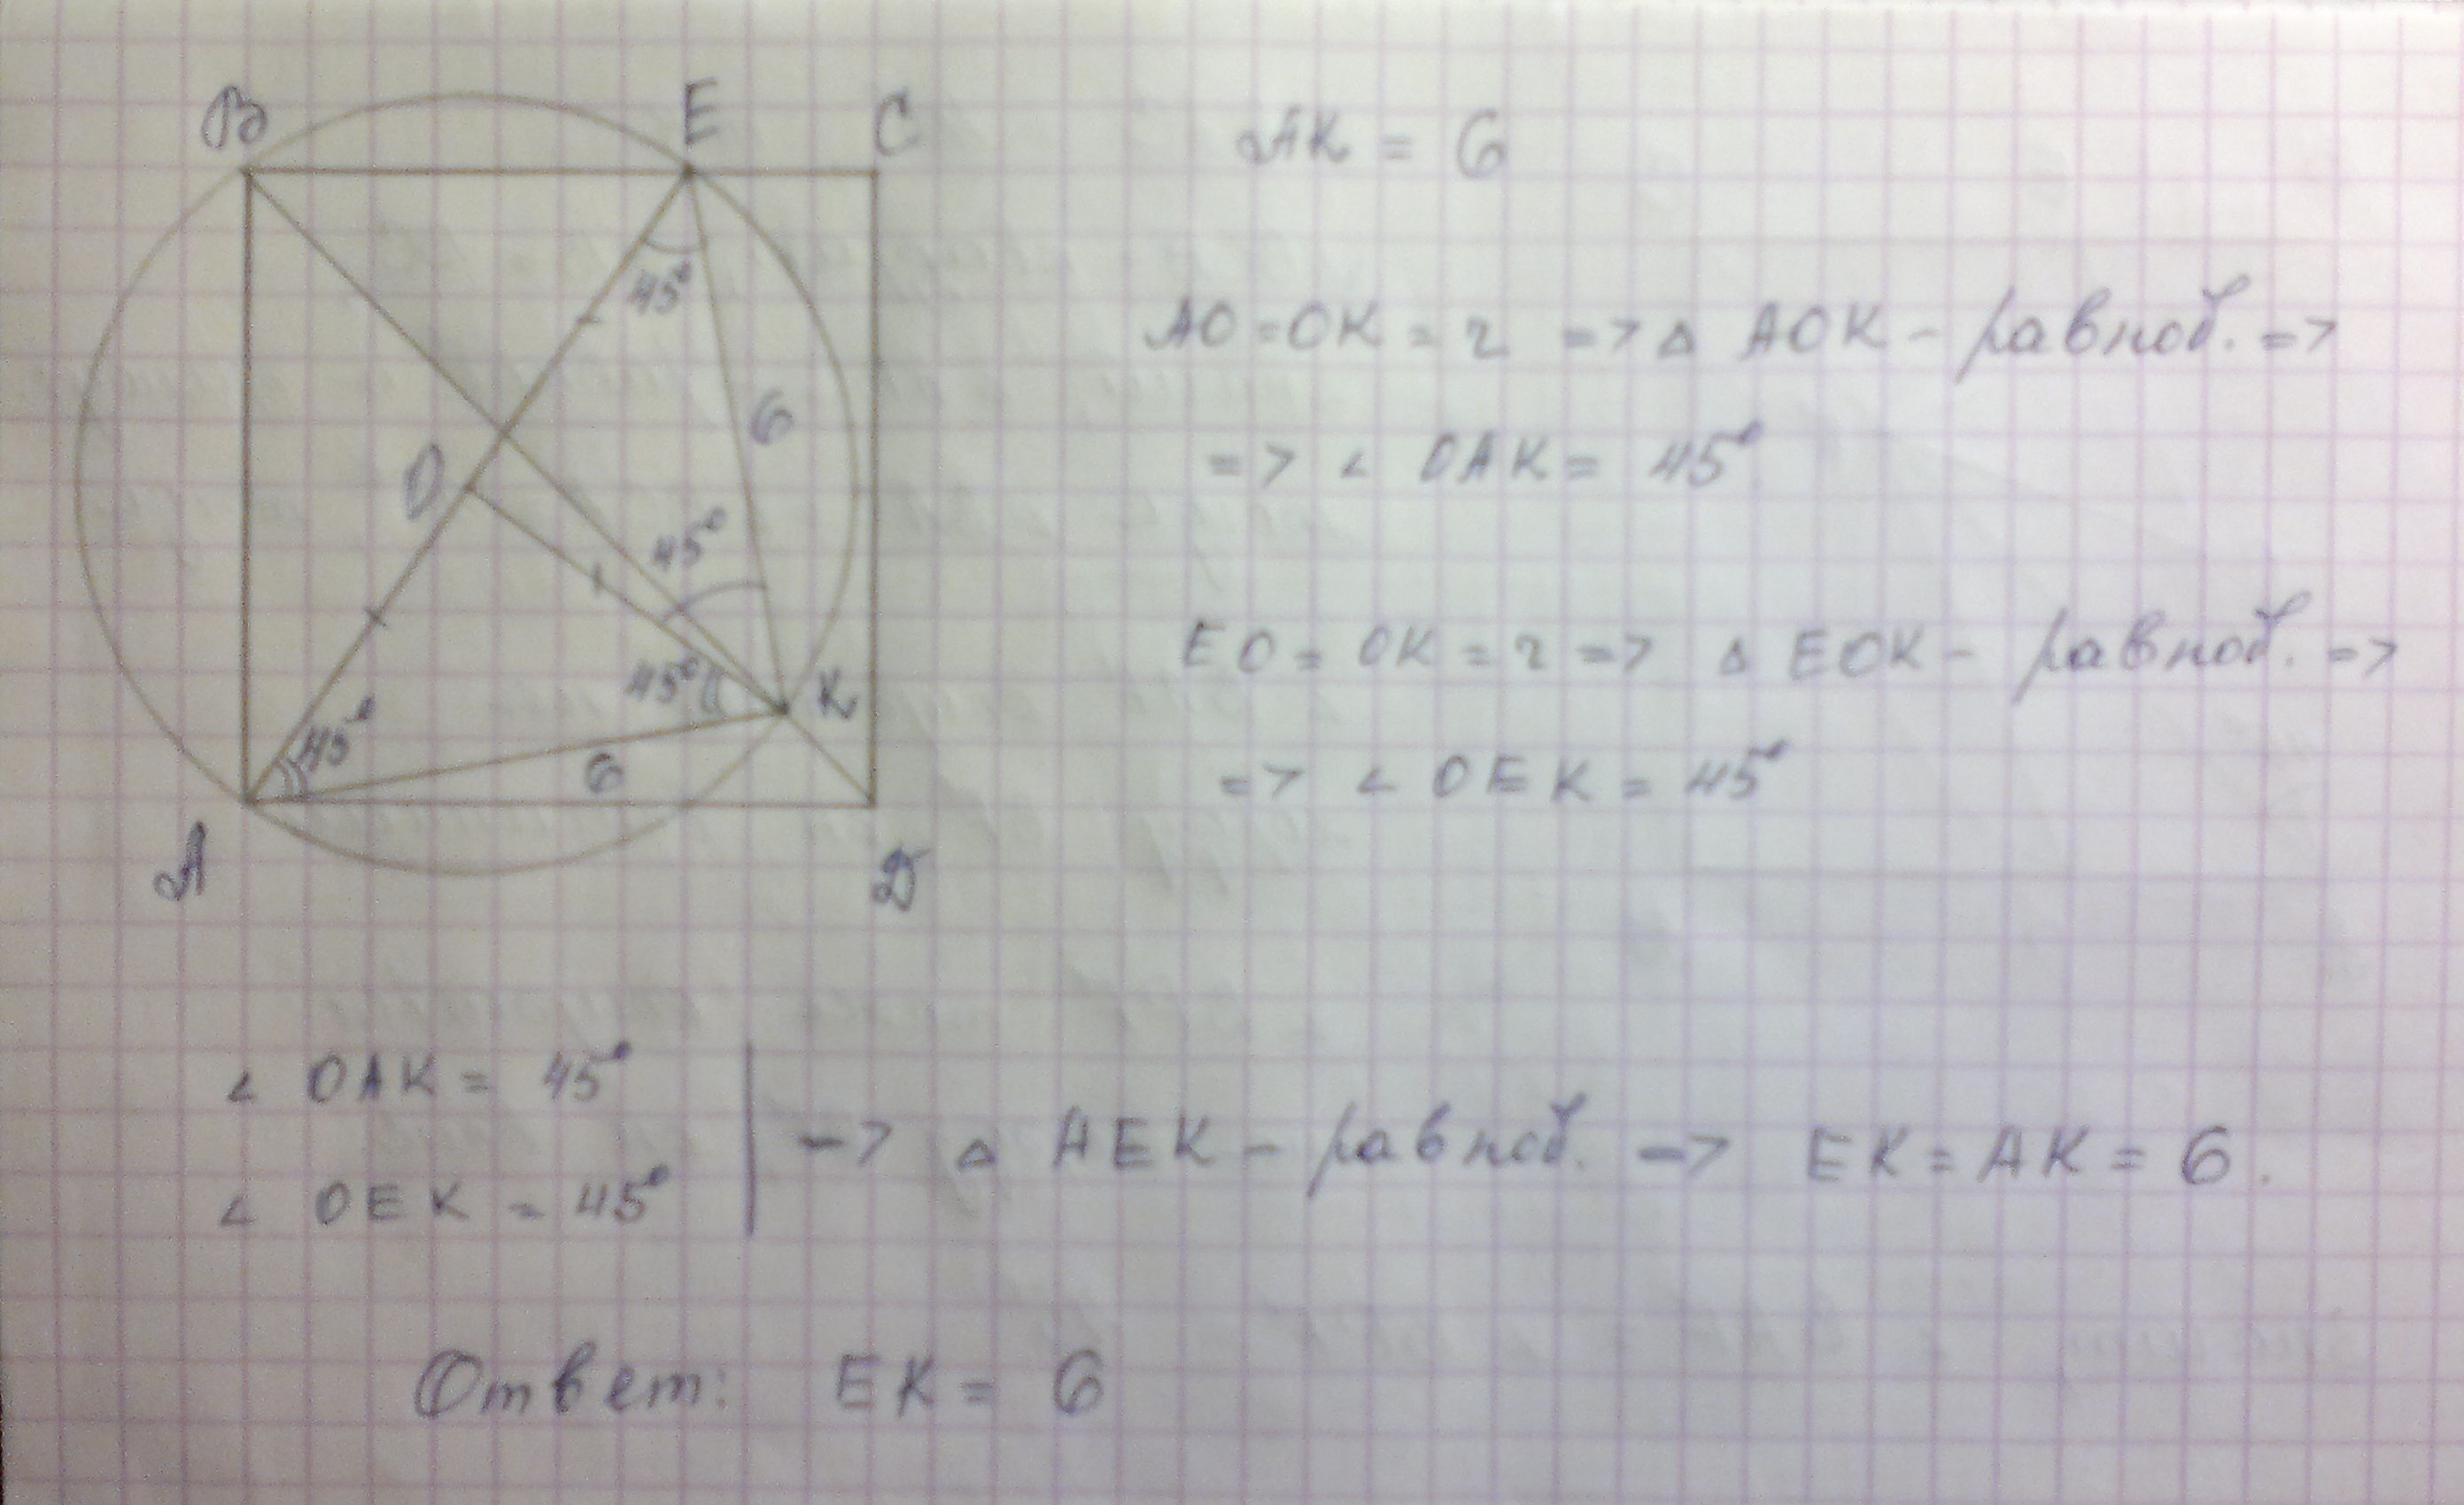 B E C
AK = 6
45°
AO = OK = r => △ AOK - равноб. =>
6
=> < OAK = 45°
O
45°
EO = OK = r => △ EOK - равноб. =>
45° K
45°
6
=> < OEK = 45°
A D
< OAK = 45°
=> △ AEK - равноб. => EK = AK = 6.
< OEK = 45°
Ответ: EK = 6